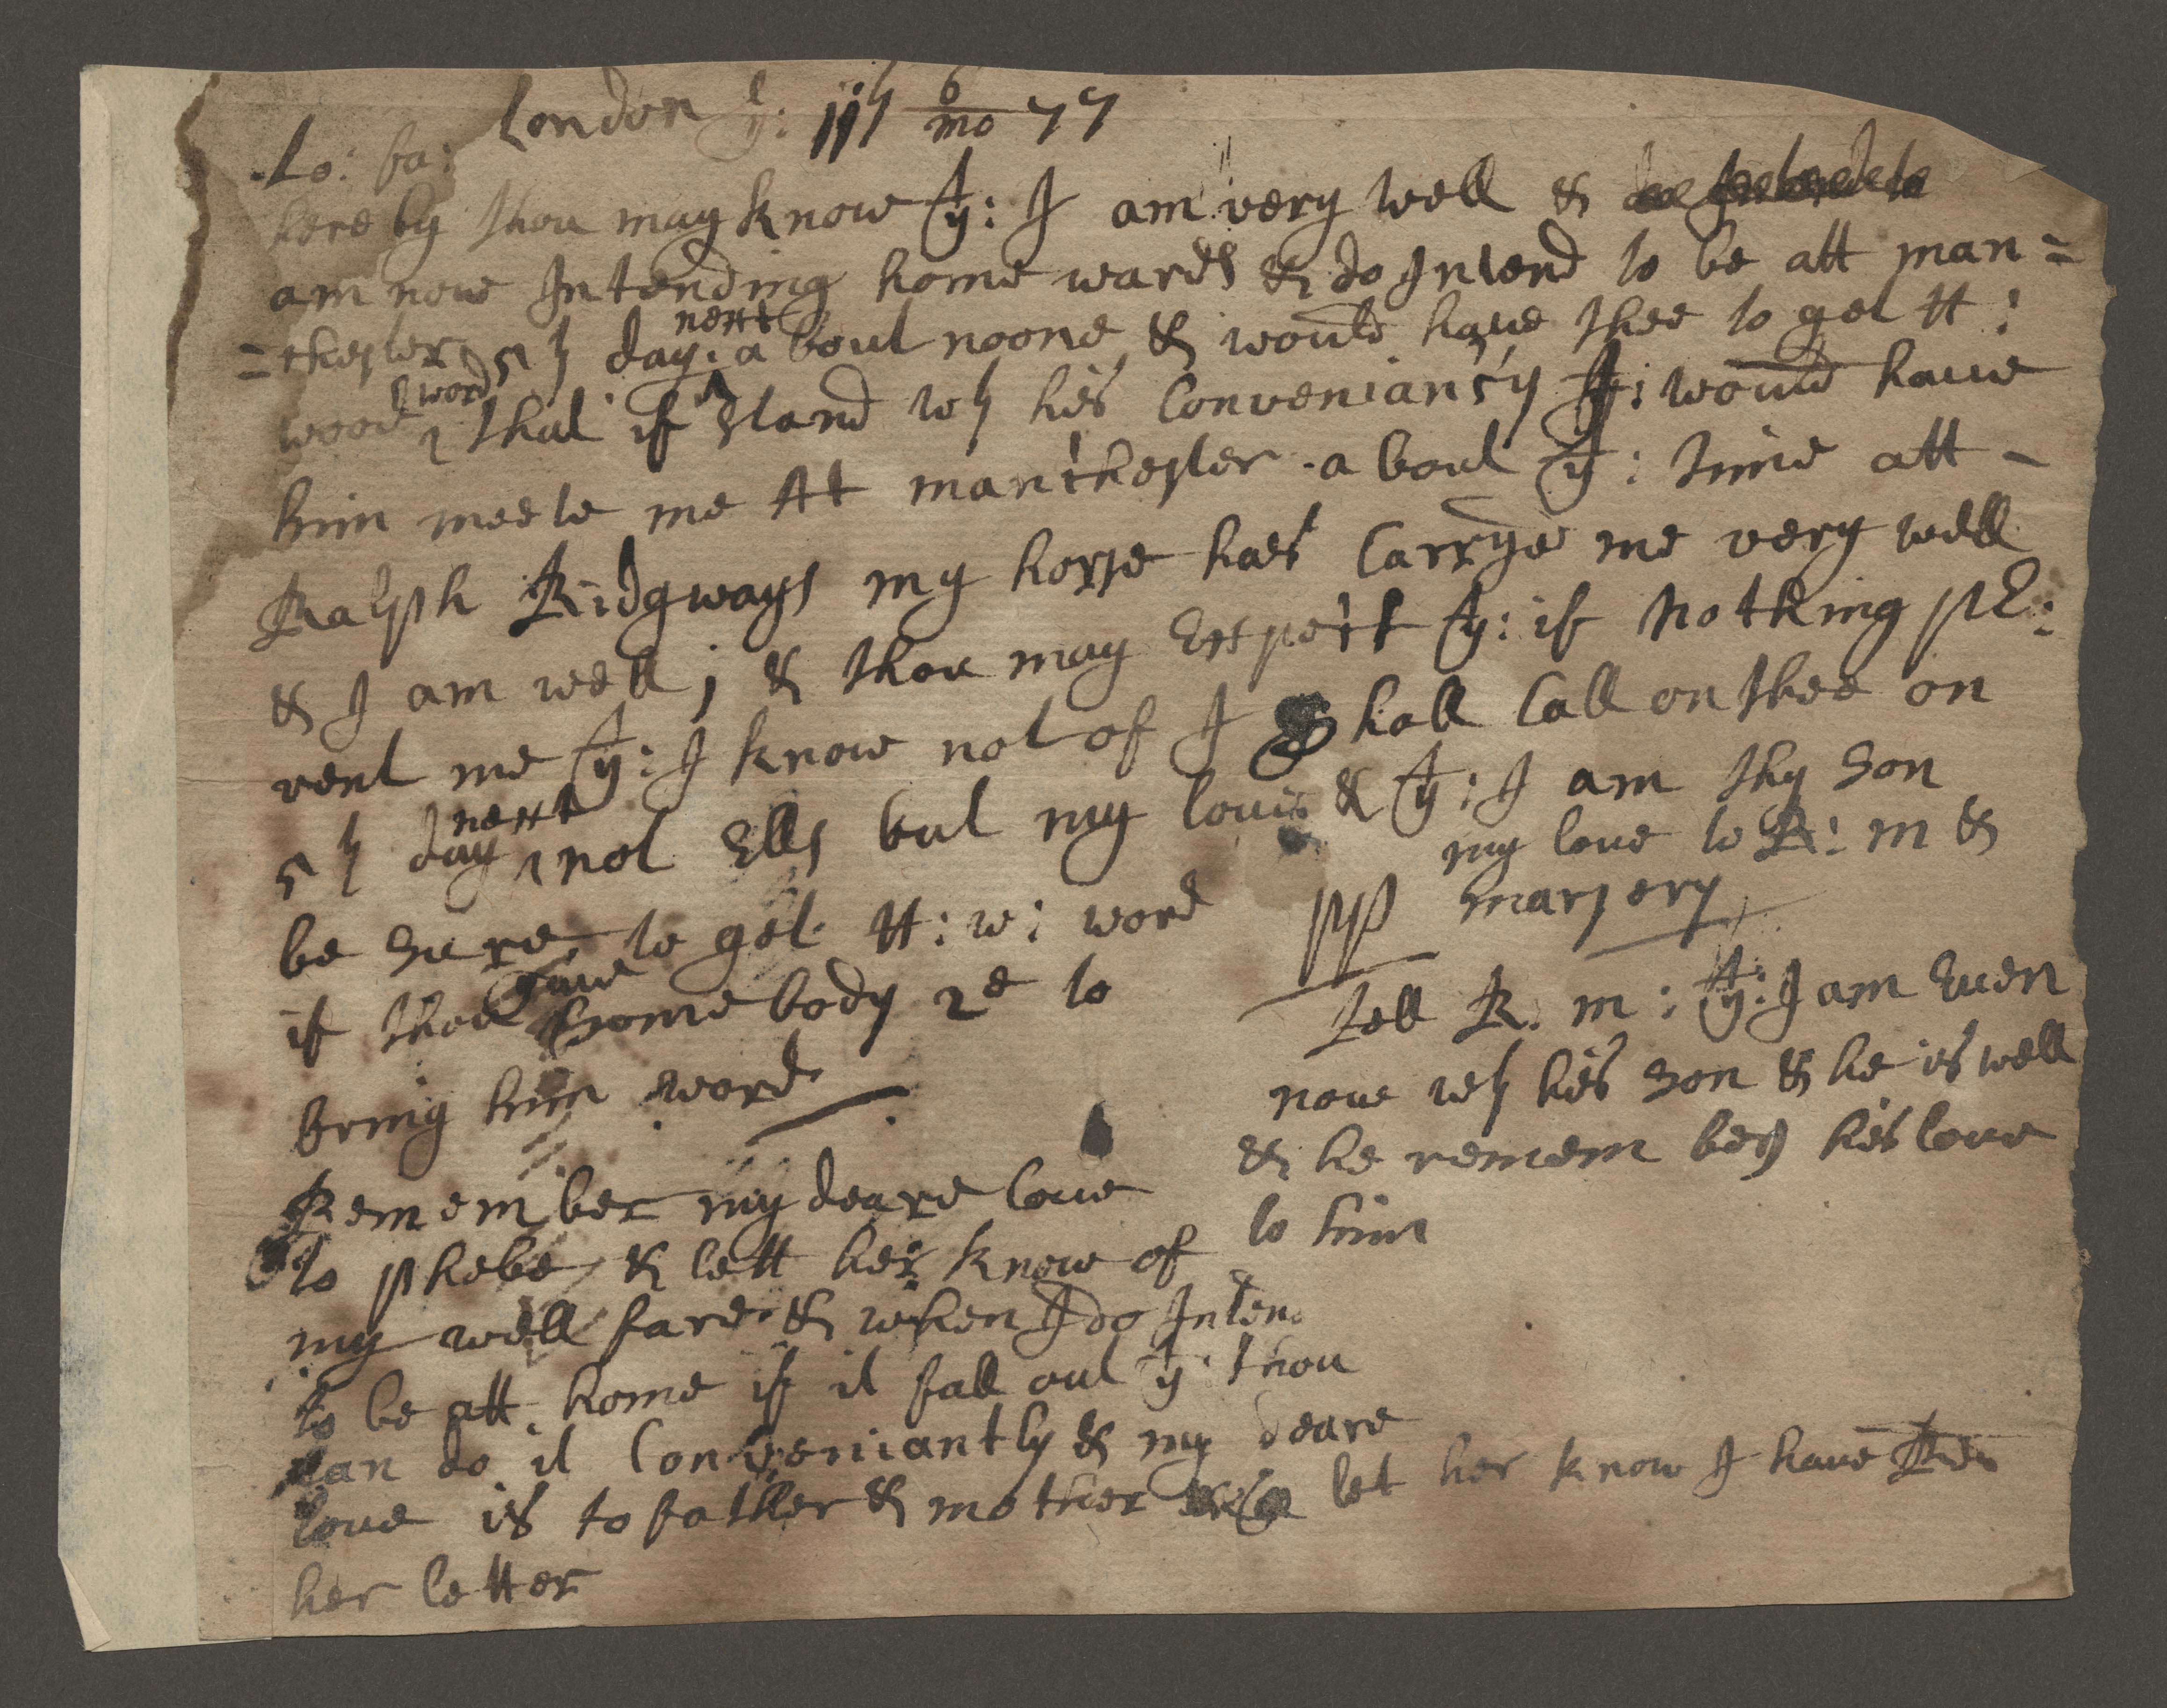 London ye: 11th 6/mo 77
Lo: fa:
hereby thou may know yt: I am very well &
am now Intending home wards & do Intend to be att man=
=chester 5th day next about noone & would haue thee to gel H:
wood word that if stand wth his Conveniansy yt: would haue
him meete me At manchester about yt: time att -
Ralph Ridgways my horse has Carryed me very well
& I am well; & thou may Expect yt: if nothing pre:
vent me yt: I know not of I Shall Call on thee on
5th day next not Ells but my loue & yt: I am thy son
my loue to R: m &
PP marjery
be sure to get H: w: word
if thou giue some body 2d to
bring him word
Tell R. m: yt: I am Euen
now wth his son & he is well
& he remembers his loue
to him
Remember my deare loue
to phebe & lett her know of
my well fare & when I do Intend
to be att home if it fall out yt thou
can do it Conveniantly & my deare
loue is to father & mother let her know I haue
her letter